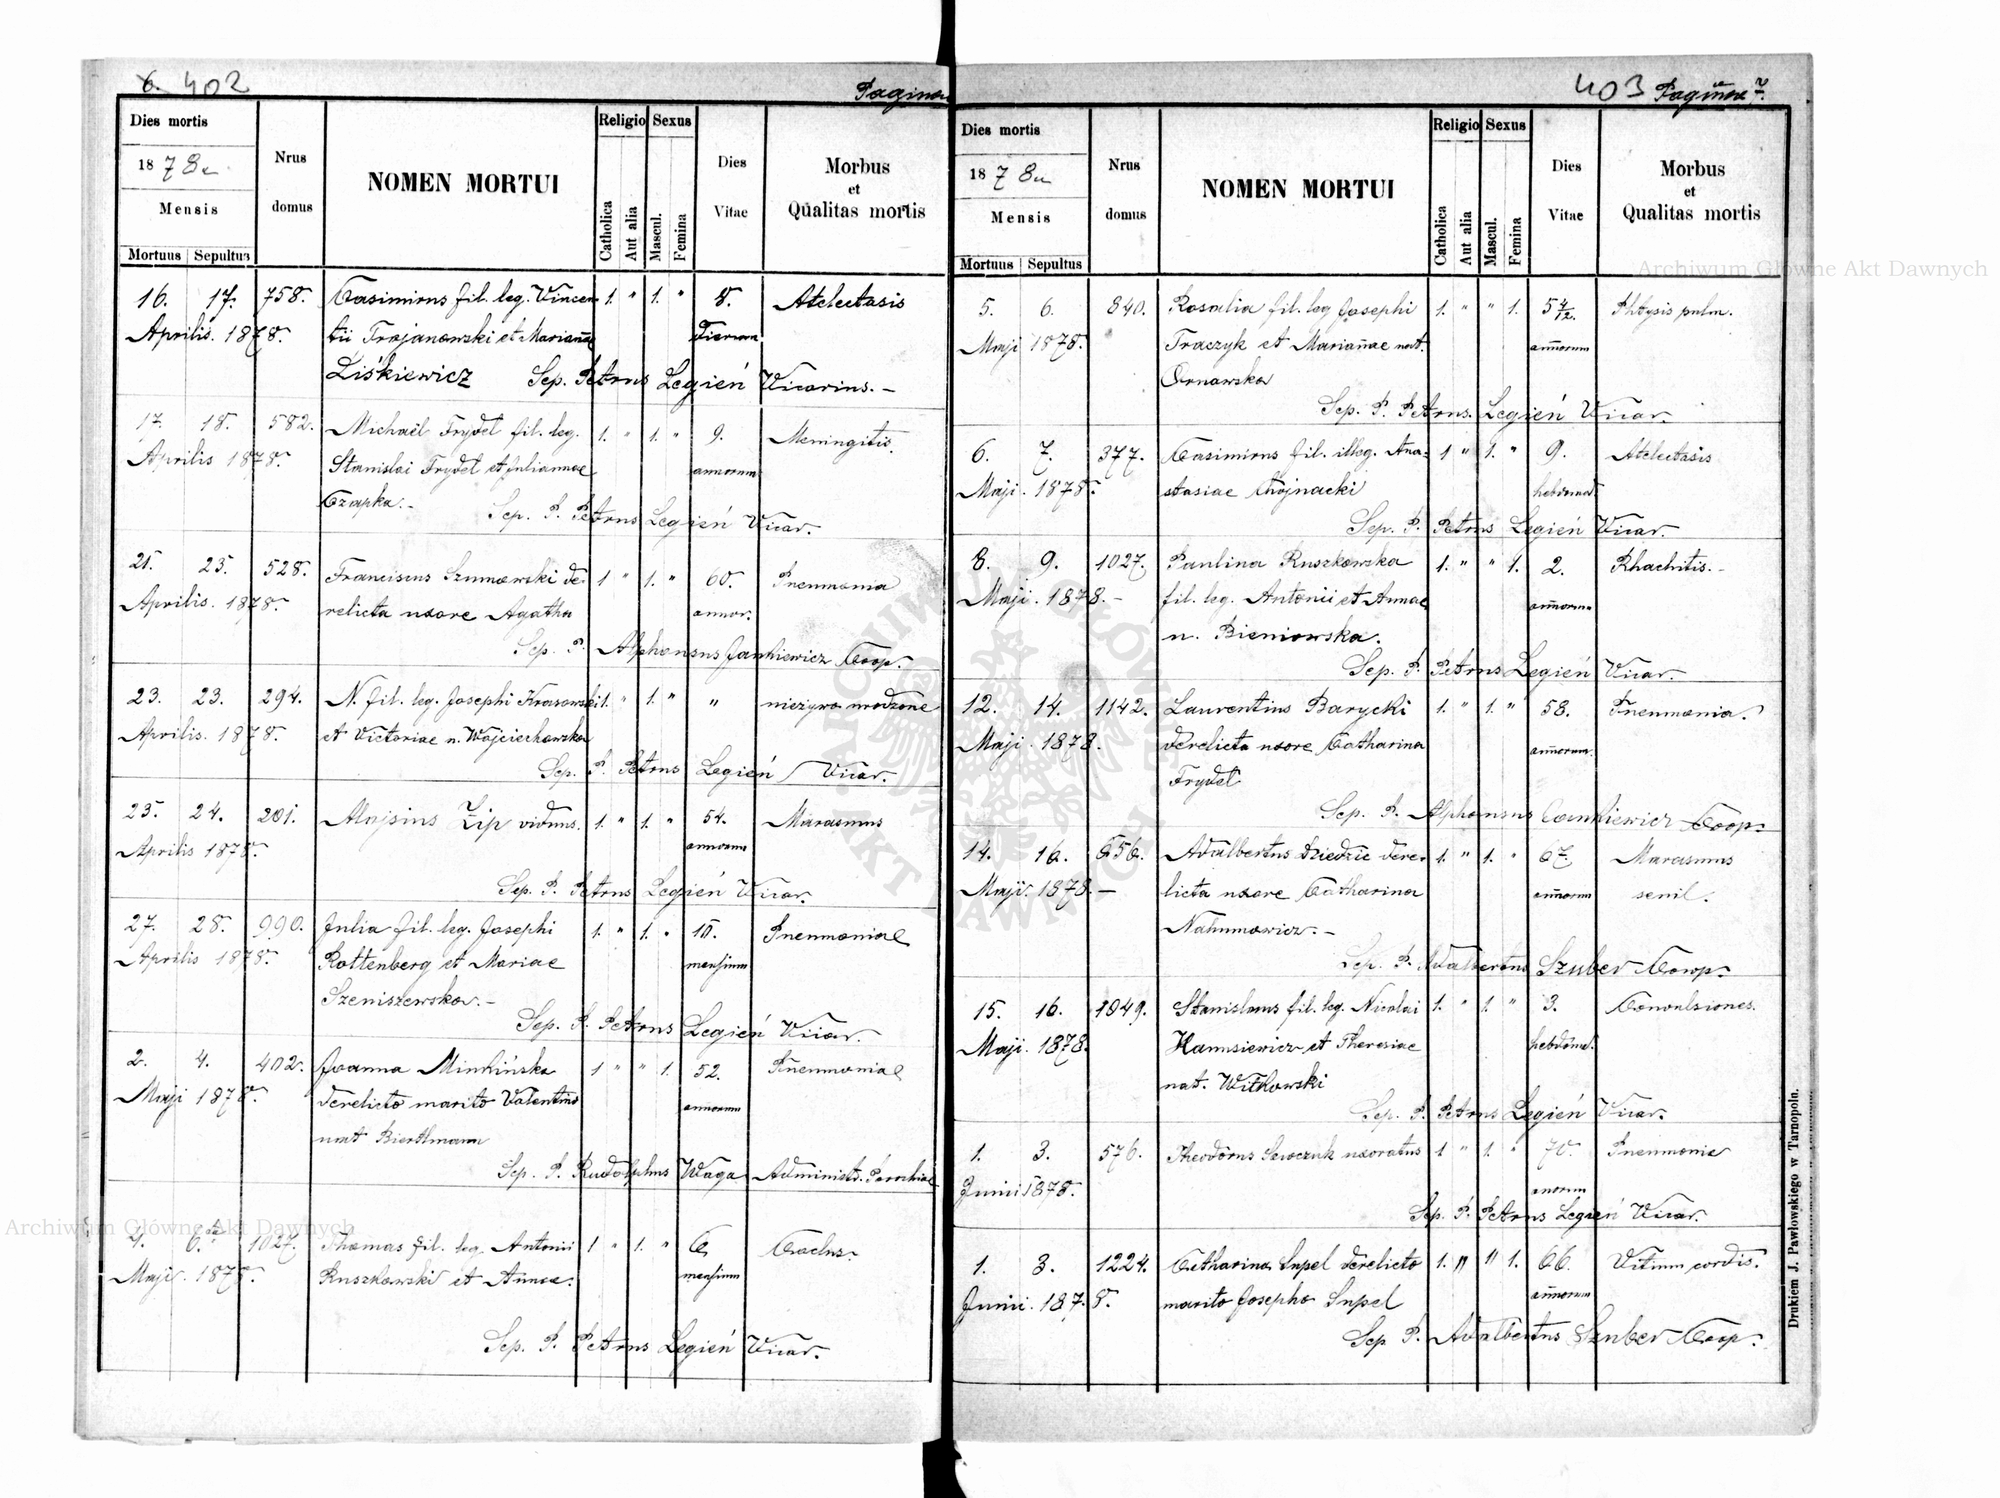 6. 402
Pagina
Dies mortis
Religio
Sexus
1878
Nrus
NOMEN MORTUI
Dies
Morbus
et
Mensis
domus
Catholica
Aut alia
Mascul.
Femina
Vitae
Qualitas mortis
Mortuus
Sepultus
16. 17. 758. Casimirus fil. leg. Vincen 1. " 1. " 8. Atelectasis
Aprilis. 1878. tii Trojanowski et Marianna dierum
Liśkiewicz Sep. Petrus Legień Vicarius. –
17. 18. 582. Michaël Frydel fil. leg. 1. " 1. " 9. Meningitis.
Aprilis 1878. Stanislai Frydel et Juliannae annorum
Czapka. –
Sep. P. Petrus Legień Vicar.
21. 23. 528. Franciscus Szumowski de- 1 " 1. " 60. Pneumonia
Aprilis. 1878. relicta uxore Agatha annor.
Sep. P. Alphonsus Jankiewicz Coop.
23. 23. 294. N. fil. leg. Josephi Krasowski 1. " 1. " " nieżywo urodzone
Aprilis. 1878. et Victoriae n. Wojciechowska
Sep. P. Petrus Legień Vicar.
23. 24. 201. Alojsius Zip viduus. 1. " 1. " 54. Marasmus
Aprilis 1878. annorum
Sep. P. Petrus Legień Vicar.
27. 28. 990. Julia fil. leg. Josephi 1. " 1. " 10. Pneumoniae
Aprilis 1878. Rottenberg et Mariae mensium
Szeniszewska. –
Sep. P. Petrus Legień Vicar.
2. 4. 402. Joanna Minkińska 1 " " 1. 52. Pneumoniae
Maji 1878. derelicto marito Valentino annorum
nat Bierthmann
Sep. P. Rudolphus Waga Administr. Parochiae
4. 6. 1027. Thomas fil. leg. Antonii 1 " 1. " 6.
Maji. 1878. Ruszkowski et Annae. mensium
Sep. P. Petrus Legień Vicar.
403 Pagina 7.
Dies mortis
Religio
Sexus
1878
Nrus
NOMEN MORTUI
Dies
Morbus
et
Mensis
domus
Catholica
Aut alia
Mascul.
Femina
Vitae
Qualitas mortis
Mortuus
Sepultus
5. 6. 840. Rosalia fil. leg Josephi 1. " " 1. Phtysis pulm.
Maji 1878. Traczyk et Mariannae nat. annorum
Ornawska
Sep. P. Petrus Legień Vicar.
6. 7. 377. Casimirus fil. illeg. Ana- 1 " 1. " 9. Atelectasis
Maji. 1878. stasiae Chojnacki hebdomad.
Sep. P. Petrus Legień Vicar.
8. 9. 1027. Paulina Ruszkowska 1. " " 1. 2. Rhachitis. –
Maji. 1878. – fil. leg. Antonii et Annae annorum
n. Bieniowska.
Sep. P. Petrus Legień Vicar.
12. 14. 1142. Laurentius Barycki 1. " 1. " 58. Pneumonia.
Maji. 1878. derelicta uxore Catharina annorum
Frydel
Sep. P. Alphonsus Jankiewicz Coop.
14. 16. 656. Adalbertus Dziedzic dere- 1. " 1. " 67. Marasmus
Maji. 1878. – licta uxore Catharina annorum senil.
Nahumowicz. –
Sep. P. Adalbertus Szuber Coop.
15. 16. 1049. Stanislaus fil. leg. Nicolai 1. " 1. " 3. Convulsiones.
Maji. 1878. Hanusiewicz et Theresiae hebdomad.
nat. Witkowski
Sep. P. Petrus Legień Vicar.
1. 3. 576. Theodorus Sewczuk uxoratus 1 " 1. " 70. Pneumonia
Junii 1878. anorum
Sep. P. Petrus Legień Vicar.
1. 3. 1224. Catharina Supel derelicto 1. " " 1. 66. Vitium cordis.
Junii. 1878. marito Josepho Supel annorum
Sep P. Adalbertus Szuber Coop.
Drukiem J. Pawłowskiego w Tarnopolu.
Archiwum Główne Akt Dawnych
Archiwum Główne Akt Dawnych
ARCHIWUM GŁÓWNE AKT DAWNYCH